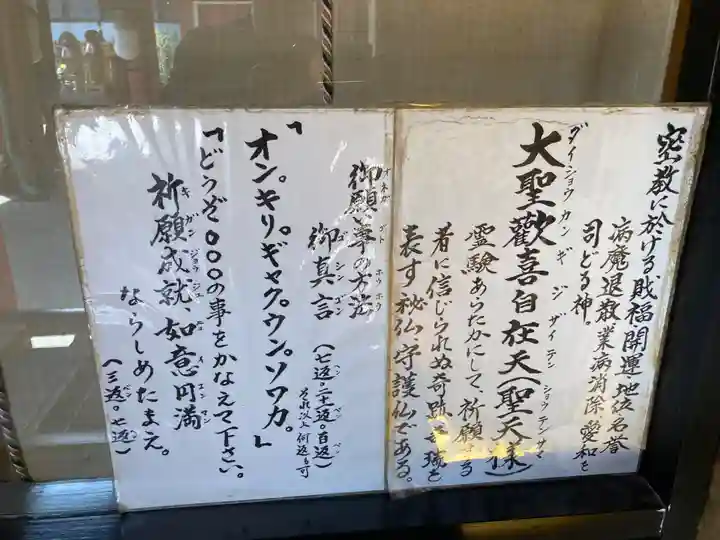 密教に於ける財福開運地位名誉
病魔退散業病消除愛和を
司どる神。
ダイショウカンギジザイテン ショウテンサマ
大聖歡喜自在天(聖天様)
霊験あらたかにして、祈願する
者に信じられぬ奇跡
表す秘仏、守護仏である。
オネガゴトホウホウ
御願い事の方法
ゴシンゴン
御真言(七返。二十一返。百返)
それ以上何返も可
「オン。キリ。ギャク。ウン。ソワカ。」
「どうぞ〇〇〇の事をかなえて下さい。
キガンジョウジュ ニョイエンマン
祈願成就、如意円満
ならしめたまえ。
(三返。七返)